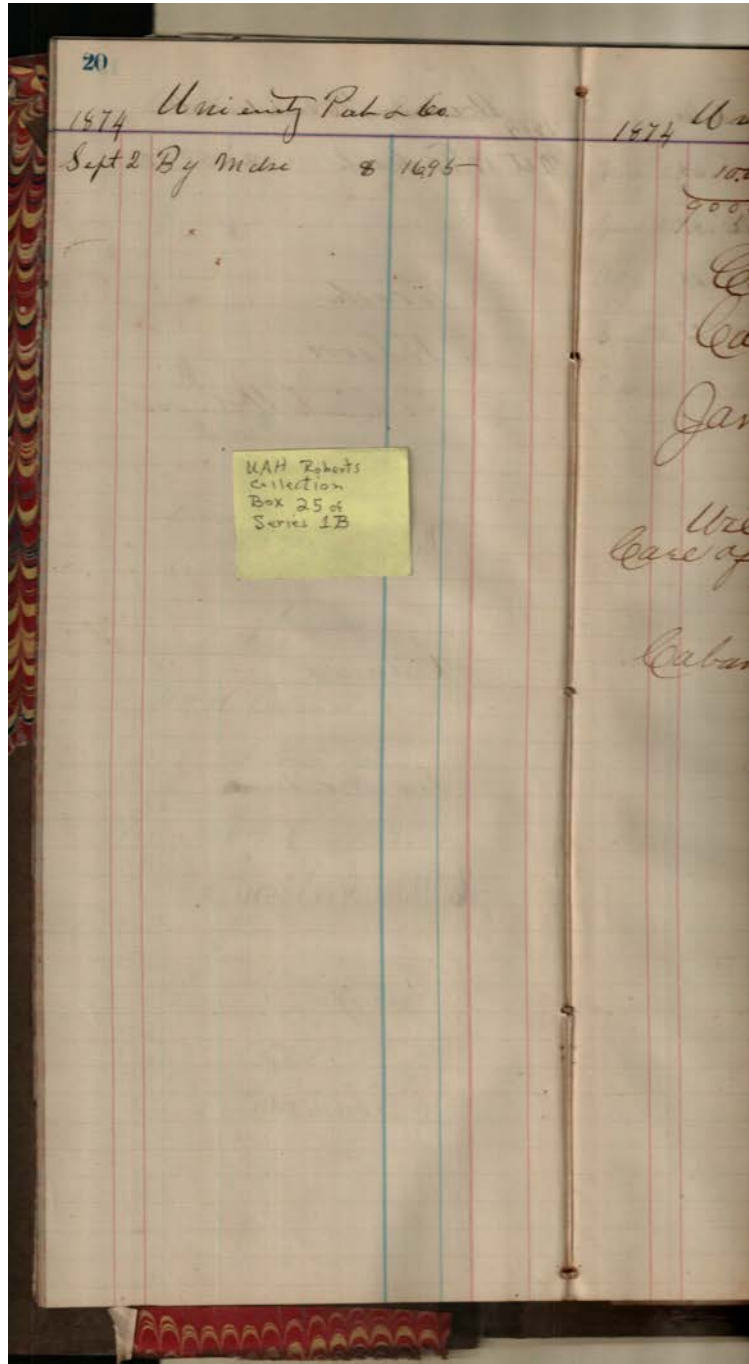 20
1874 University Pub & Co.
Sept 2 By Mdse $ 16.95
UAH Roberts
Collection
Box 25 of
Series 1B
1874 Un
10.0
900
Ca
Jan
Care of
Caban